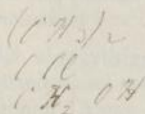 (CH3)2
CCl
CH2 OH